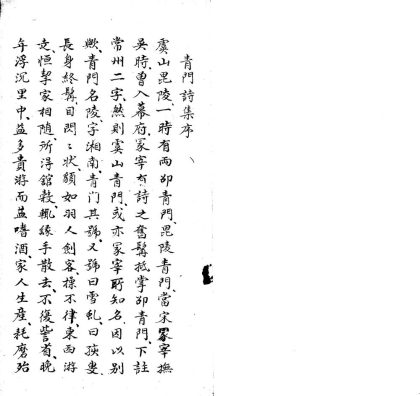 青門詩集序
虞山毘陵、一時有兩邵青門、毘陵青門、當宋冡宰撫
吳時、曾入幕府、冡宰有詩之奮髯抵掌邵青門、下註
常州二字、然則虞山青門、或亦冡宰所知名、因以別
歟、青門名陵、字湘南、青门其號、又號曰雪虬、曰
長身終髯、目閃〻狀、頟如羽人劍客、標不律、東西游
走、恒挈家相随、所淂館穀、輒緣手散去、不復訾省、晚
年浮沉里中、益多貴游而益嗜酒、家人生産、耗磨殆